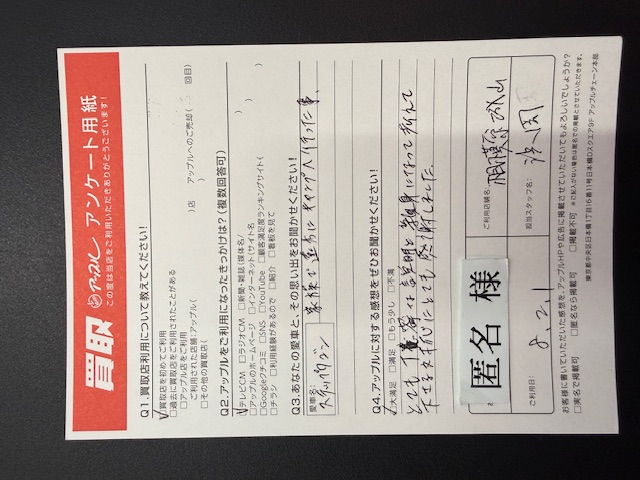 買取 アップル アンケート用紙
この度は当店をご利用いただきありがとうございます!
Q1.買取店利用について教えてください!
☑買取店を初めてご利用
□過去に買取店をご利用されたことがある
□アップル店をご利用
ご利用された店舗:アップル( )店 アップルへのご売却( 回目)
□その他の買取店( )
Q2.アップルをご利用になったきっかけは?(複数回答可)
☑テレビCM □ラジオCM □新聞・雑誌(媒体名/ )
□アップルのホームページ □インターネット(サイト名 )
□Googleクチコミ □SNS □YouTube □顧客満足度ランキングサイト( )
□チラシ □利用経験があるので □紹介 □看板を見て
Q3.あなたの愛車と、その思い出をお聞かせください!
愛車名:
ステップワゴン
家族で遠方にキャンプへ行った事、
Q4.アップルに対する感想をぜひお聞かせください!
☑大満足 □満足 □もう少し □不満
とても丁寧な説明と親身になって
とても感謝しました。
匿名 様
ご利用店舗名:
相模原
担当スタッフ名:
ご利用日:
8.2.1
お客様に書いていただいた感想を、アップルHPや広告に掲載させていただいてもよろしいでしょうか?
□実名で掲載可 □匿名なら掲載可 □掲載不可 ※ご記入がない場合は匿名での掲載とさせていただきます。
東京都中央区日本橋1丁目16番11号日本橋Dスクエア9F アップルチェーン本部